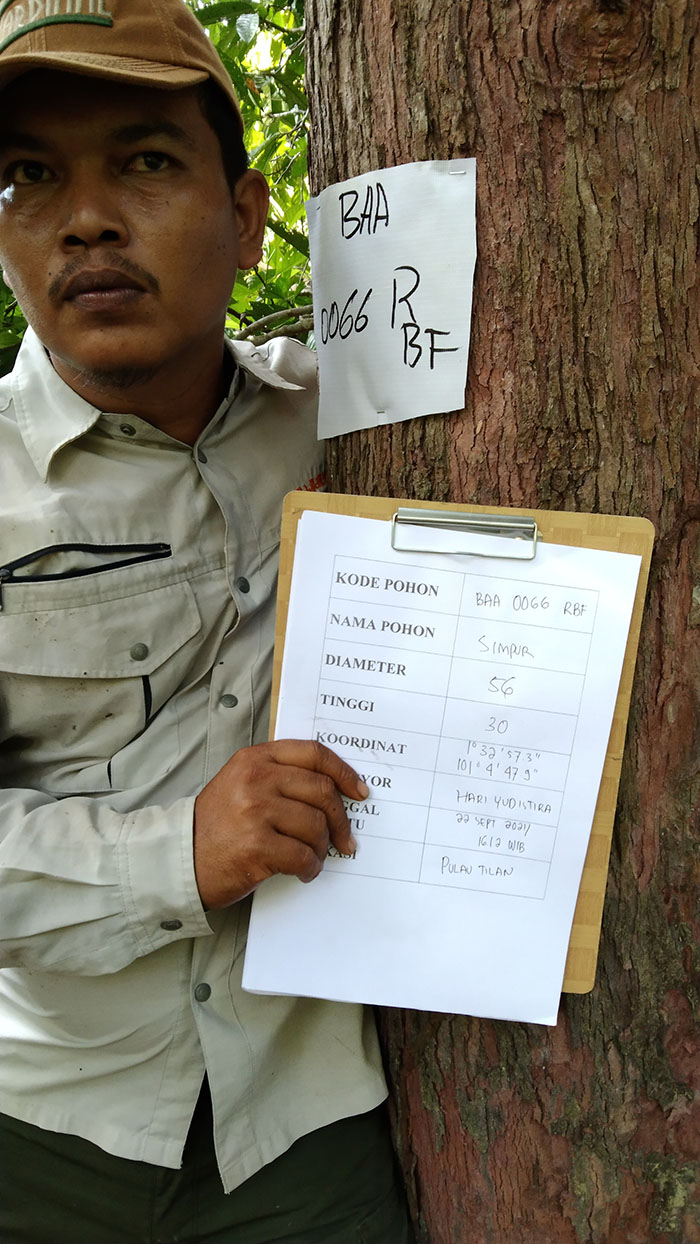 BAA
0066 R
BF
KODE POHON BAA 0066 RBF
NAMA POHON SIMPUR
DIAMETER 56
TINGGI 30
KOORDINAT 1° 32' 57.3"
101° 4' 47.9"
YOR HARI YUDISTIRA
GGAL 22 SEPT 2021/
TU 1612 WIB
KASI PULAU TILAN